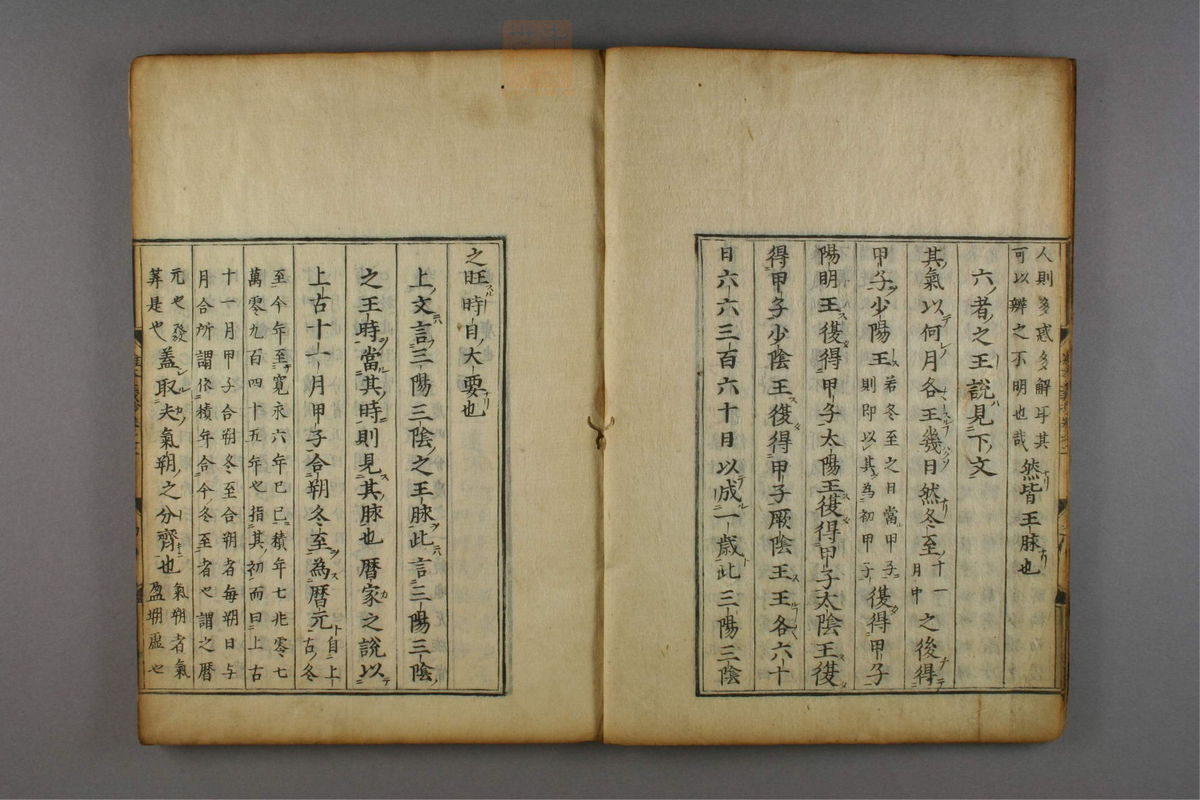 人則多惑多解耳其
可以辨之不明也哉
然皆王脉也
六者之王說見下文
其氣以何月各王幾日然冬至
十一
月中
之後得
甲子少陽王
若冬至之日當甲子
則即以其為初甲子
復得甲子
陽明王復得甲子太陽王復得甲子太陰王復
得甲子少陰王復得甲子厥陰王王各六十
日六六三百六十日以成一歲此三陽三陰
之旺時日大要也
上文言三陽三陰之王脉此言三陽三陰
之王時當其時則見其脉也曆家之說以
上古十一月甲子合朔冬至為曆元
自上
古冬
至今年至寬永六年己巳積年七兆零七
萬零九百四十五年也指其初而曰上古
十一月甲子合朔冬至合朔者每朔日与
月合所謂依積年合今冬至者也謂之曆
元也發
筭是也
蓋取夫氣朔之分齊也
氣朔者氣
盈朔虛也